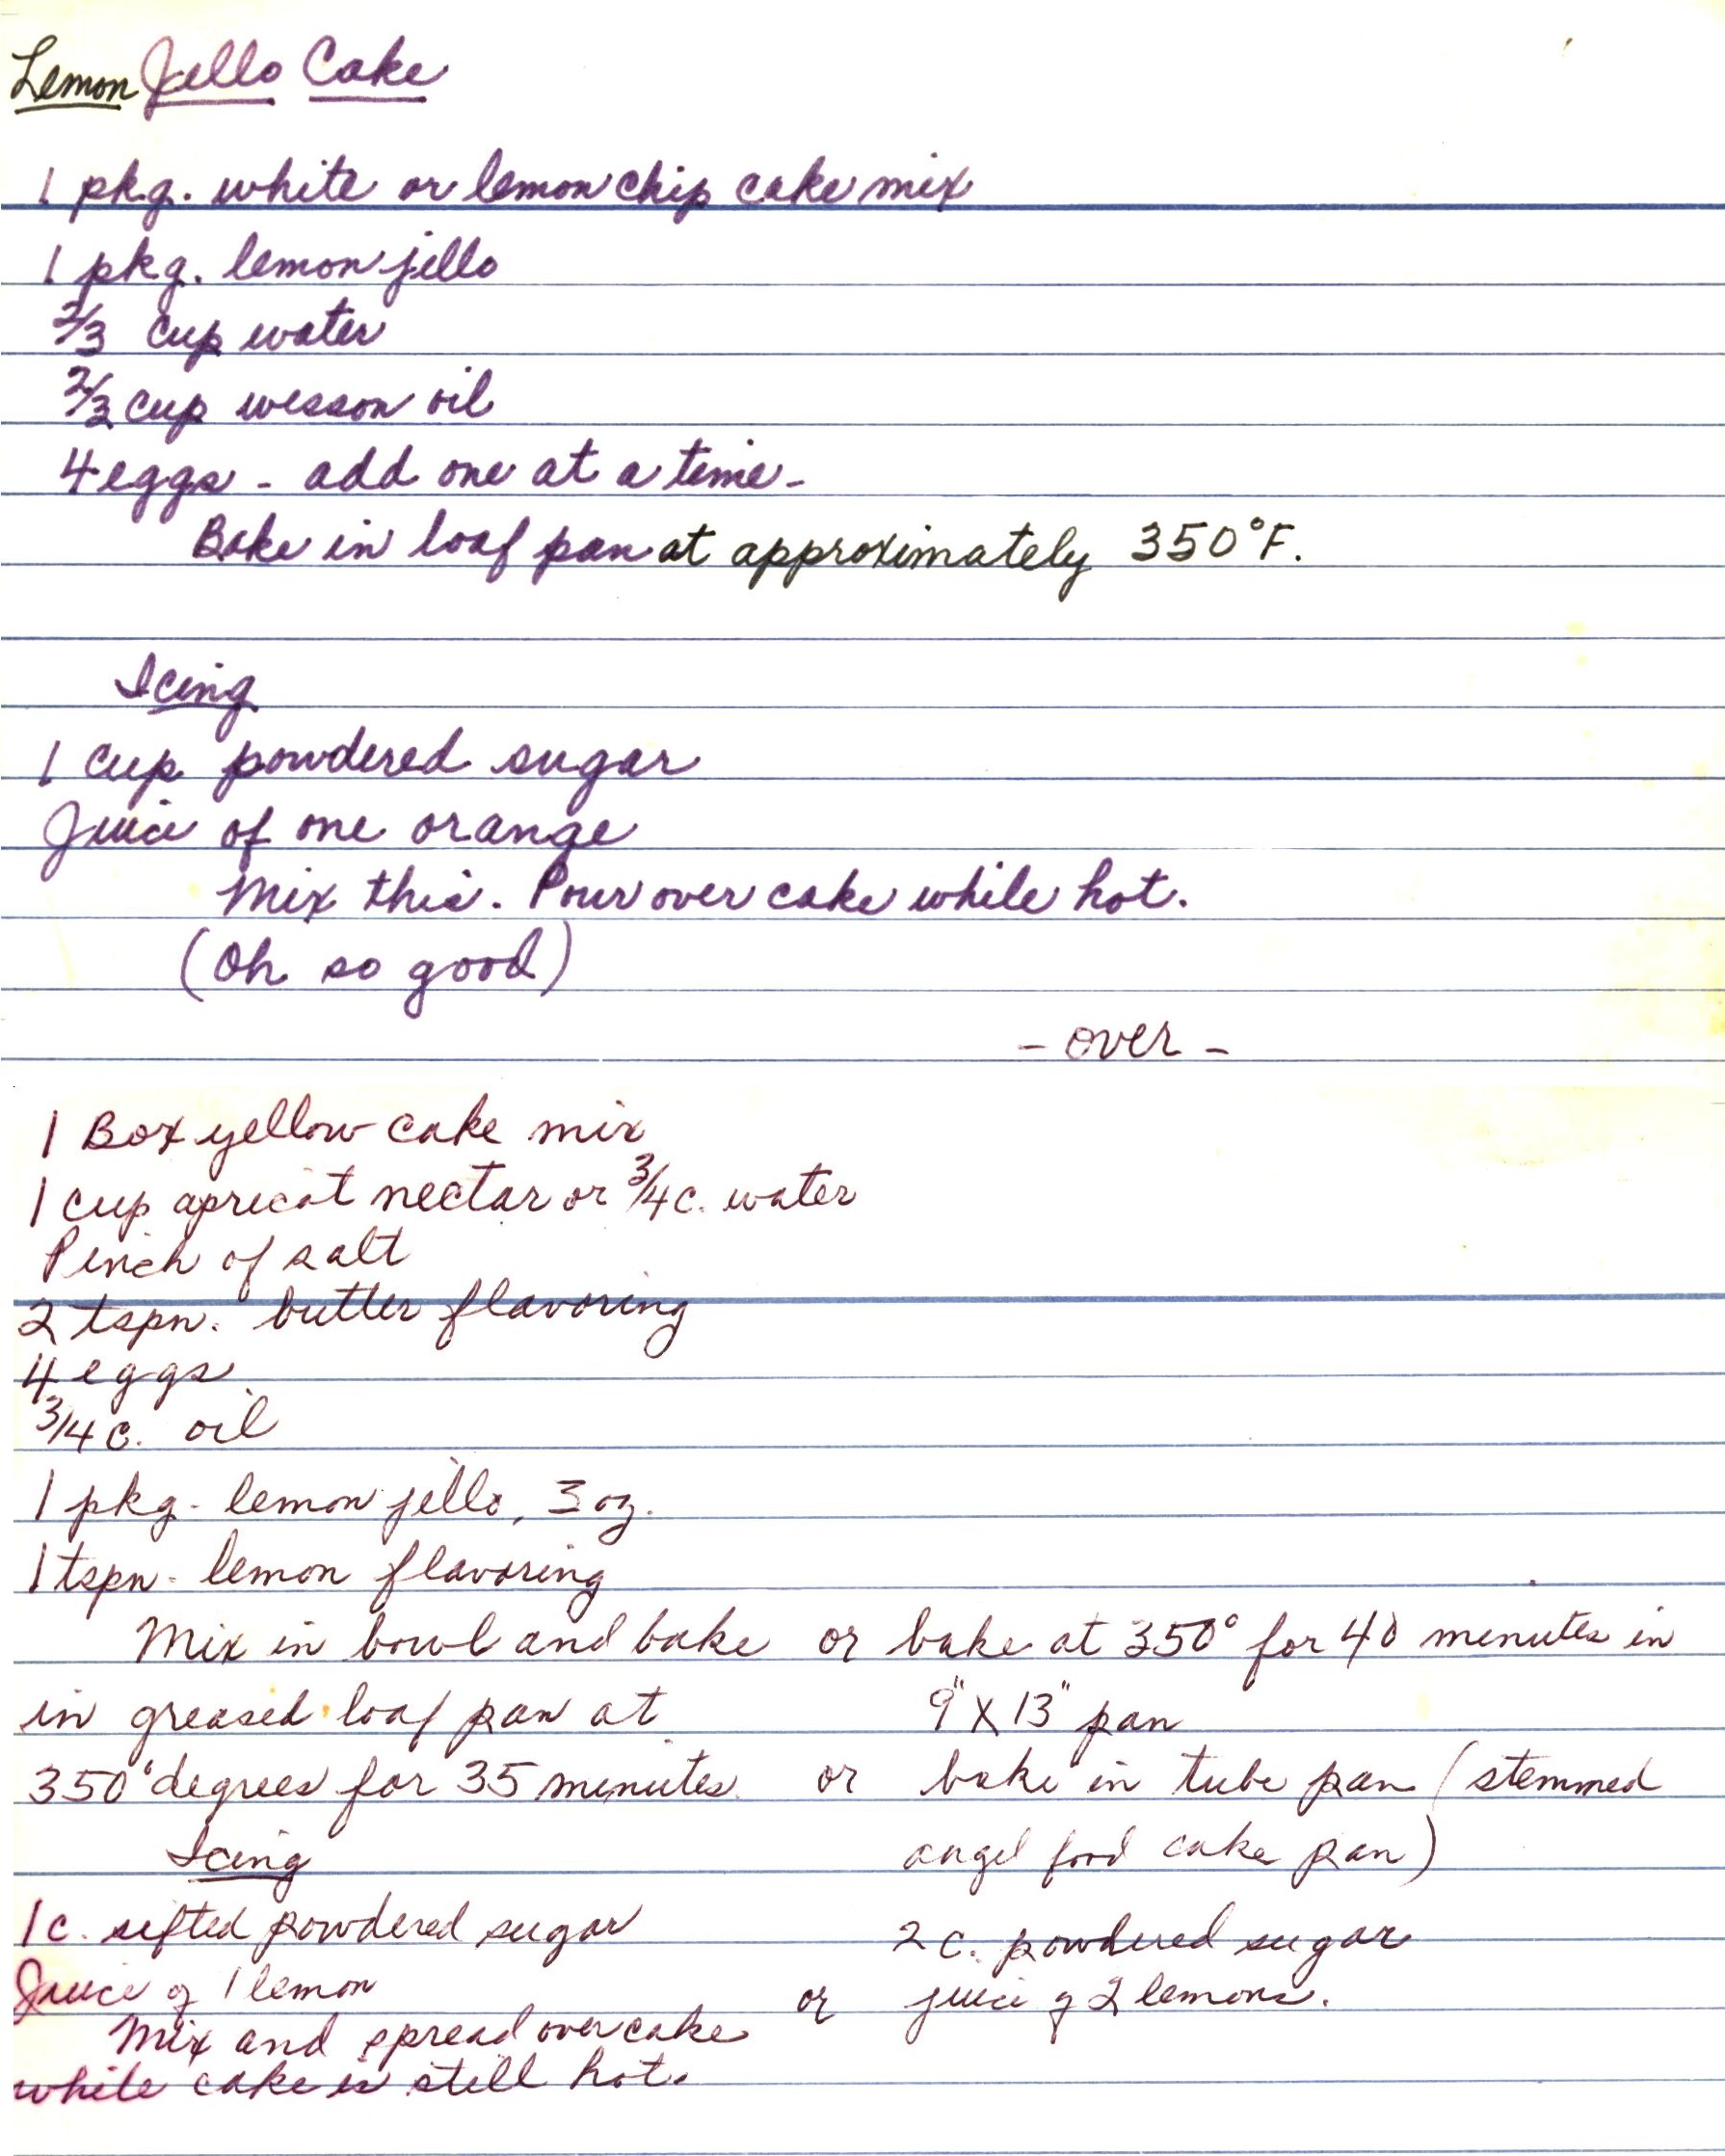 Lemon Jello Cake
1 pkg. white or lemon chip cake mix
1 pkg. lemon jello
2/3 cup water
2/3 cup wesson oil
4 eggs - add one at a time -
Bake in loaf pan at approximately 350°F.
Icing
1 cup powdered sugar
Juice of one orange
Mix this. Pour over cake while hot.
(Oh so good)
- over -
1 Box yellow cake mix
1 cup apricot nectar or 3/4 c. water
Pinch of salt
2 tspn. butter flavoring
4 eggs
3/4 c. oil
1 pkg. lemon jello, 3 oz.
1 tspn. lemon flavoring
Mix in bowl and bake
in greased loaf pan at
350° degrees for 35 minutes
or bake at 350° for 40 minutes in
9" X 13" pan
or bake in tube pan (stemmed
angel food cake pan)
Icing
1 c. sifted powdered sugar
Juice of 1 lemon
Mix and spread over cake
while cake is still hot.
2 c. powdered sugar
or juice of 2 lemons.